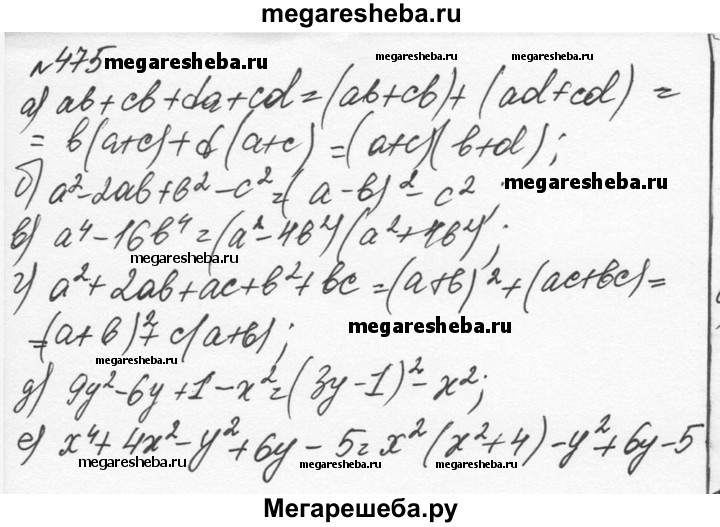 megaresheba.ru
№475 megaresheba.ru megaresheba.ru
а) ab+cb+da+cd=(ab+cb)+(ad+cd)=
= b(a+c)+d(a+c)=(a+c)(b+d);
б) a²-2ab+b²-c²=(a-b)²-c² megaresheba.ru
в) a⁴-16b⁴=(a²-4b²)(a²+4b²);
megaresheba.ru
г) a²+2ab+ac+b²+bc=(a+b)²+(ac+bc)=
=(a+b)²+c(a+b); megaresheba.ru
megaresheba.ru
д) 9y²-6y+1-x²=(3y-1)²-x²;
е) x⁴+4x²-y²+6y-5=x²(x²+4)-y²+6y-5
megaresheba.ru megaresheba.ru megaresheba.ru
Мегарешеба.ру